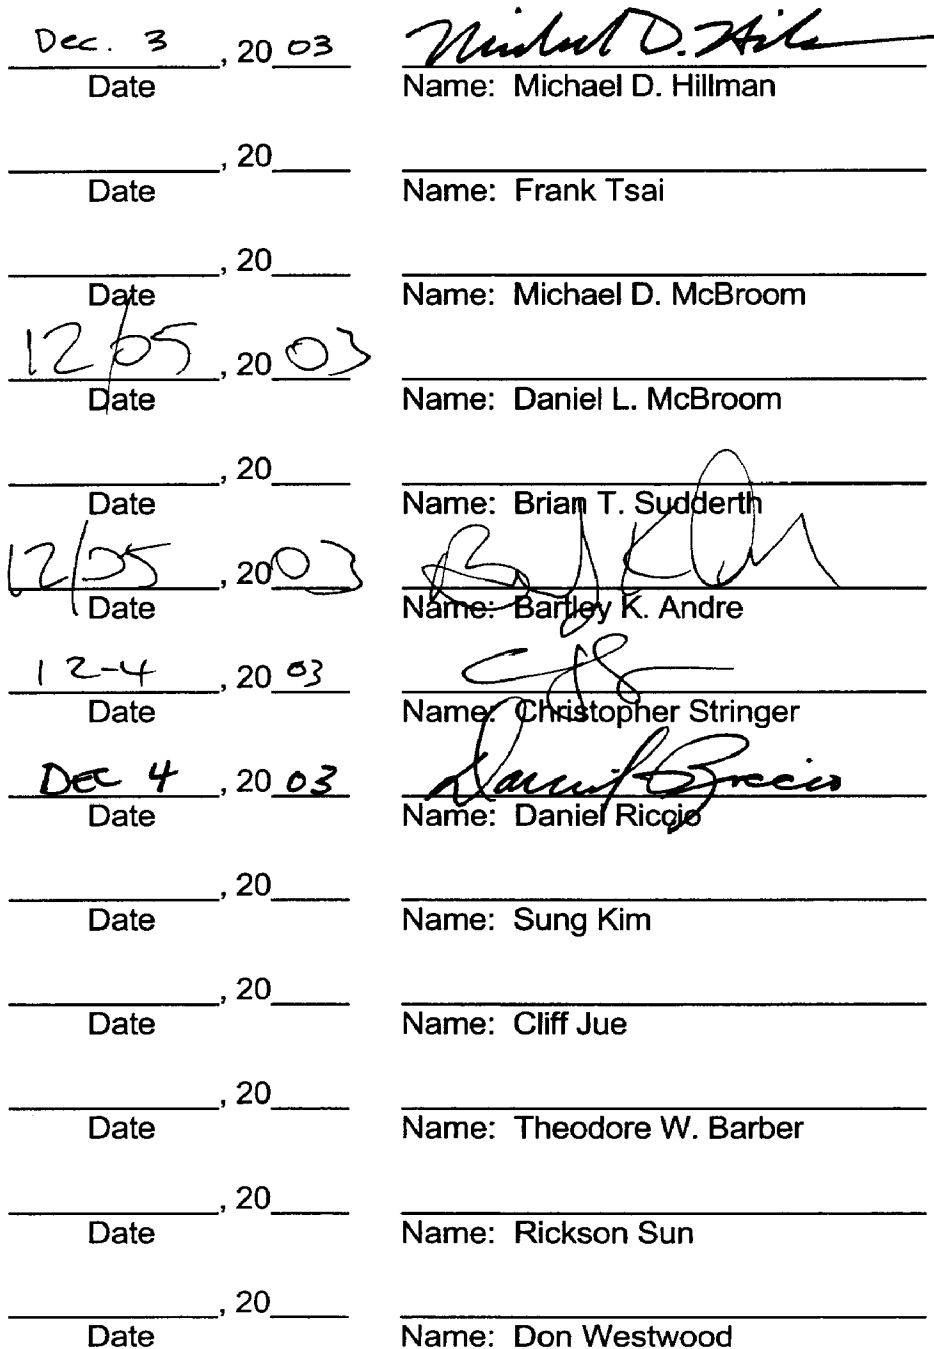 Dec. 3, 20 03 Michael D. Hil
Date Name: Michael D. Hillman
, 20
Date Name: Frank Tsai
, 20
Date Name: Michael D. McBroom
12/05, 20 03
Date Name: Daniel L. McBroom
, 20
Date Name: Brian T. Sudderth
12/05, 20 03
Date Name: Bartley K. Andre
12-4, 20 03
Date Name: Christopher Stringer
DEC 4, 20 03 Daniel Riccio
Date Name: Daniel Riccio
, 20
Date Name: Sung Kim
, 20
Date Name: Cliff Jue
, 20
Date Name: Theodore W. Barber
, 20
Date Name: Rickson Sun
, 20
Date Name: Don Westwood